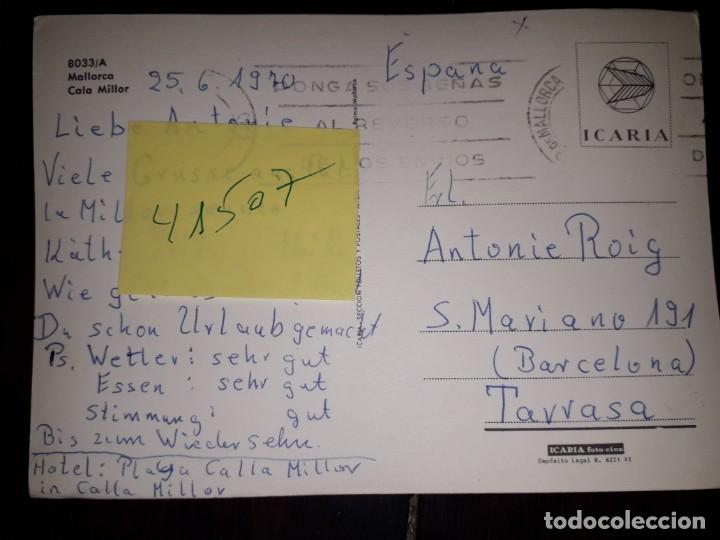 8033/A
Mallorca
Cala Millor
25.6.1970
España
x
PONGA SUS SEÑAS
AL REVERSO
DE LOS ENVIOS
MALLORCA
ICARIA
Liebe Antonie
Viele Grüsse
41507
Wie
Du schon Urlaub gemacht
Ps. Wetter: sehr gut
Essen: sehr gut
Stimmung: gut
Bis zum Wiedersehn.
Hotel: Playa Calla Millor
in Calla Millor
Palma Mallorca
ICARIA - SECCION FOLLETOS Y POSTALES
Antonie Roig
S. Mariano 191
(Barcelona)
Tarrasa
ICARIA foto-cine
Depósito Legal B. 6221 XI
todocoleccion.net